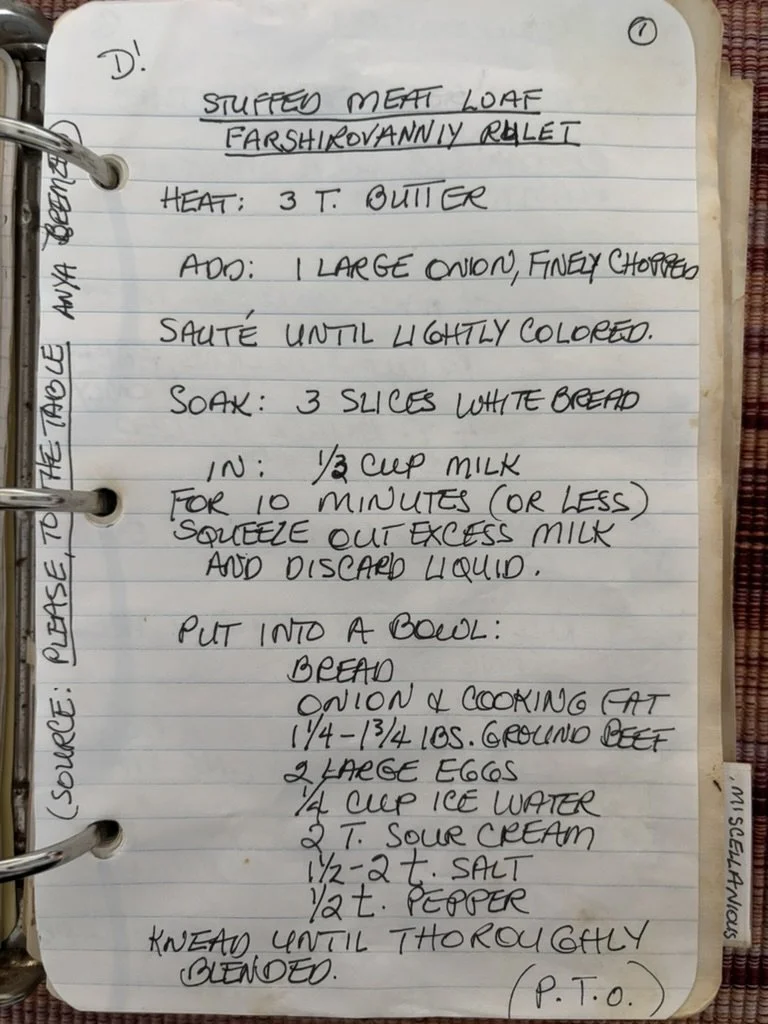 D!
①
STUFFED MEAT LOAF
FARSHIROVANNIY RULET
HEAT: 3 T. BUTTER
ADD: 1 LARGE ONION, FINELY CHOPPED
SAUTÉ UNTIL LIGHTLY COLORED.
SOAK: 3 SLICES WHITE BREAD
IN: 1/3 CUP MILK
FOR 10 MINUTES (OR LESS)
SQUEEZE OUT EXCESS MILK
AND DISCARD LIQUID.
PUT INTO A BOWL:
BREAD
ONION & COOKING FAT
1 1/4 - 1 3/4 LBS. GROUND BEEF
2 LARGE EGGS
1/4 CUP ICE WATER
2 T. SOUR CREAM
1 1/2 - 2 t. SALT
1/2 t. PEPPER
KNEAD UNTIL THOROUGHLY
BLENDED.
(P.T.O.)
(SOURCE: PLEASE, TO THE TABLE ANYA
MISCELLANIOUS